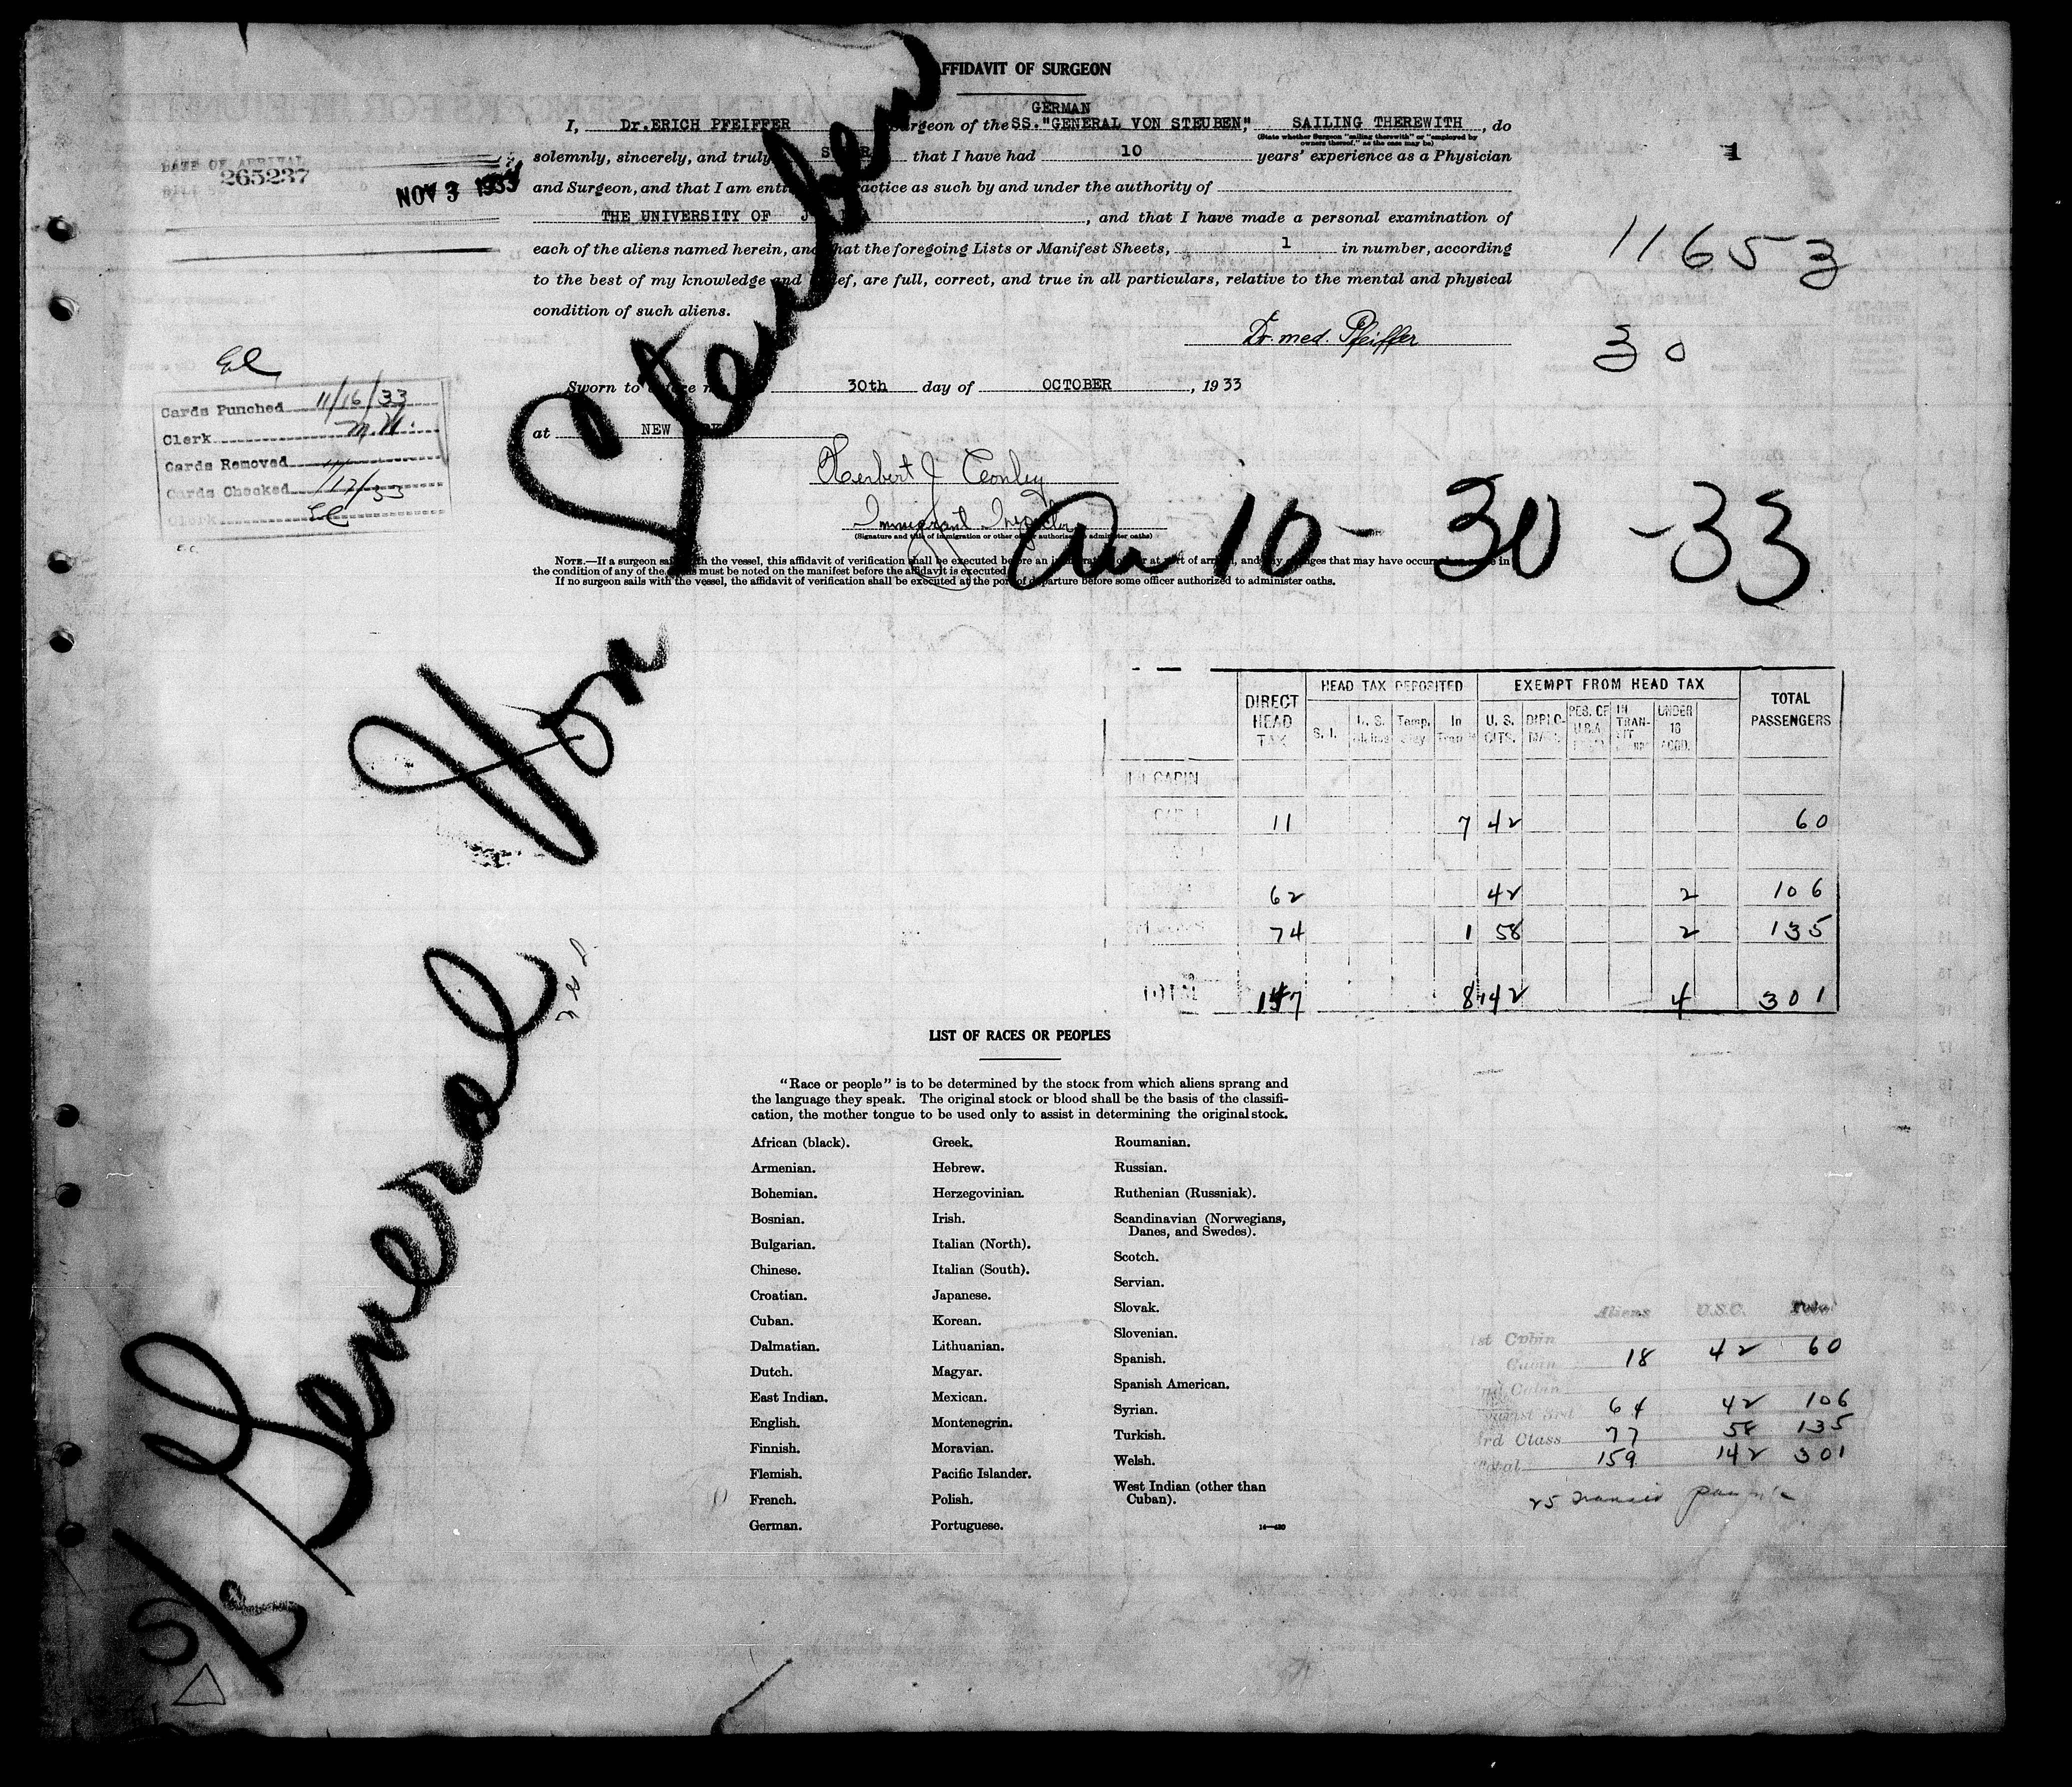 AFFIDAVIT OF SURGEON
GERMAN
I, Dr.ERICH PFEIFFER Surgeon of the SS."GENERAL VON STEUBEN", SAILING THEREWITH, do
(State whether Surgeon "sailing therewith" or "employed by owners thereof," as the case may be)
solemnly, sincerely, and truly that I have had 10 years' experience as a Physician
and Surgeon, and that I am entitled to practice as such by and under the authority of
THE UNIVERSITY OF , and that I have made a personal examination of
each of the aliens named herein, and that the foregoing Lists or Manifest Sheets, 1 in number, according
to the best of my knowledge and belief, are full, correct, and true in all particulars, relative to the mental and physical
condition of such aliens.
Dr. med. Pfeiffer
Sworn to before me 30th day of OCTOBER, 1933
at NEW YORK
Herbert J. Conley
Immigrant Inspector
(Signature and title of immigration or other officer authorized to administer oaths)
NOTE.—If a surgeon sails with the vessel, this affidavit of verification shall be executed before an immigration officer at port of arrival, and any changes that may have occurred in
the condition of any of the aliens must be noted on the manifest before the affidavit is executed
If no surgeon sails with the vessel, the affidavit of verification shall be executed at the port of departure before some officer authorized to administer oaths.
DATE OF ARRIVAL
265237
NOV 3 1933
1
11653
30
Cards Punched 11/16/33
Clerk M.H.
Cards Removed
Cards Checked 11/17/33
Clerk El
S/S General Von Steuben
Arr 10-30-33
DIRECT HEAD TAX
HEAD TAX DEPOSITED
EXEMPT FROM HEAD TAX
TOTAL PASSENGERS
S. I.
U. S.
Temp. Stay
In Transit
U. S. CITS.
DIPLOMATS
RES. OF U.S.A.
IN TRANSIT
UNDER 16 ACCD.
1st CABIN
CABIN 11 7 42 60
62 42 2 106
74 1 58 2 135
TOTAL 147 8 142 4 301
LIST OF RACES OR PEOPLES
"Race or people" is to be determined by the stock from which aliens sprang and
the language they speak. The original stock or blood shall be the basis of the classifi-
cation, the mother tongue to be used only to assist in determining the original stock.
African (black).
Armenian.
Bohemian.
Bosnian.
Bulgarian.
Chinese.
Croatian.
Cuban.
Dalmatian.
Dutch.
East Indian.
English.
Finnish.
Flemish.
French.
German.
Greek.
Hebrew.
Herzegovinian.
Irish.
Italian (North).
Italian (South).
Japanese.
Korean.
Lithuanian.
Magyar.
Mexican.
Montenegrin.
Moravian.
Pacific Islander.
Polish.
Portuguese.
Roumanian.
Russian.
Ruthenian (Russniak).
Scandinavian (Norwegians,
Danes, and Swedes).
Scotch.
Servian.
Slovak.
Slovenian.
Spanish.
Spanish American.
Syrian.
Turkish.
Welsh.
West Indian (other than
Cuban).
Aliens U.S.C. Total
1st Cabin
Cabin 18 42 60
2nd Cabin
Tourist 3rd 64 42 106
3rd Class 77 58 135
Total 159 142 301
25 Transit